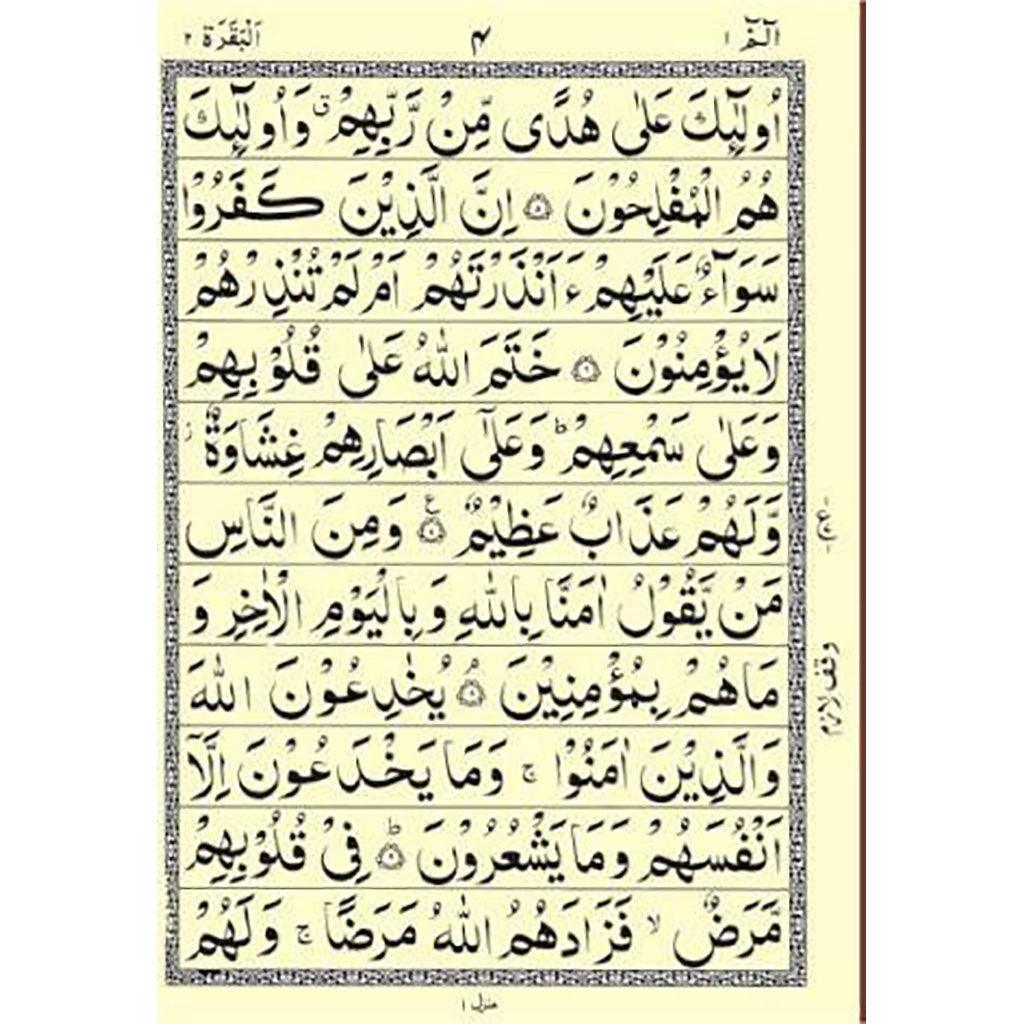 الٓـمّٓ ١ ٤ اَلْبَقَرَة ٢
اُولٰٓئِكَ عَلٰى هُدًى مِّنْ رَّبِّهِمْ ق وَاُولٰٓئِكَ
هُمُ الْمُفْلِحُوْنَ ۝٥ اِنَّ الَّذِيْنَ كَفَرُوْا
سَوَآءٌ عَلَيْهِمْ ءَاَنْذَرْتَهُمْ اَمْ لَمْ تُنْذِرْهُمْ
لَا يُؤْمِنُوْنَ ۝٦ خَتَمَ اللّٰهُ عَلٰى قُلُوْبِهِمْ
وَعَلٰى سَمْعِهِمْ ؕ وَعَلٰٓى اَبْصَارِهِمْ غِشَاوَةٌ ز
وَّلَهُمْ عَذَابٌ عَظِيْمٌ ۝٧ ع وَمِنَ النَّاسِ
مَنْ يَّقُوْلُ اٰمَنَّا بِاللّٰهِ وَبِالْيَوْمِ الْاٰخِرِ وَ
مَا هُمْ بِمُؤْمِنِيْنَ ۝٨ۘ يُخٰدِعُوْنَ اللّٰهَ
وَالَّذِيْنَ اٰمَنُوْا ۚ وَمَا يَخْدَعُوْنَ اِلَّآ
اَنْفُسَهُمْ وَمَا يَشْعُرُوْنَ ۝٩ؕ فِيْ قُلُوْبِهِمْ
مَّرَضٌ ۙ فَزَادَهُمُ اللّٰهُ مَرَضًا ۚ وَلَهُمْ
ع
وقف لازم
منزل ١